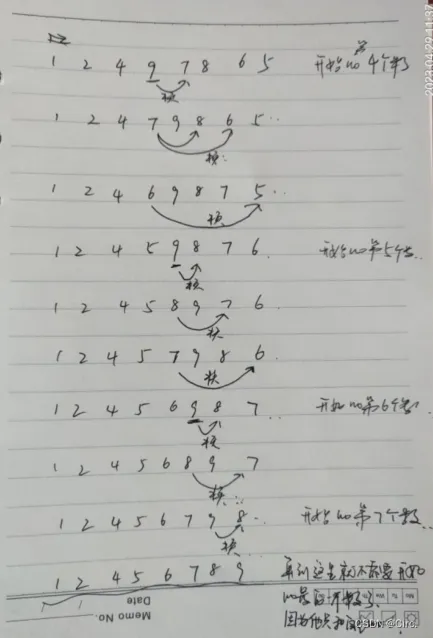 1 2 4 9 7 8 6 5 开始 no 第4个数
换
1 2 4 7 9 8 6 5 ..
换:
1 2 4 6 9 8 7 5 ..
换
1 2 4 5 9 8 7 6 . 开始 no 第5个
换
1 2 4 5 8 9 7 6
换
1 2 4 5 7 9 8 6
换
1 2 4 5 6 9 8 7 .. 开始 no 第6个
换
1 2 4 5 6 8 9 7
换 ..
1 2 4 5 6 7 9 8 .. 开始 no 第7个数
换
1 2 4 5 6 7 8 9 再到这里就不需要开始
no
Memo No.
Date
Mo Tu We Th Fr
2023-04-29 11:37
CSDN @Chre